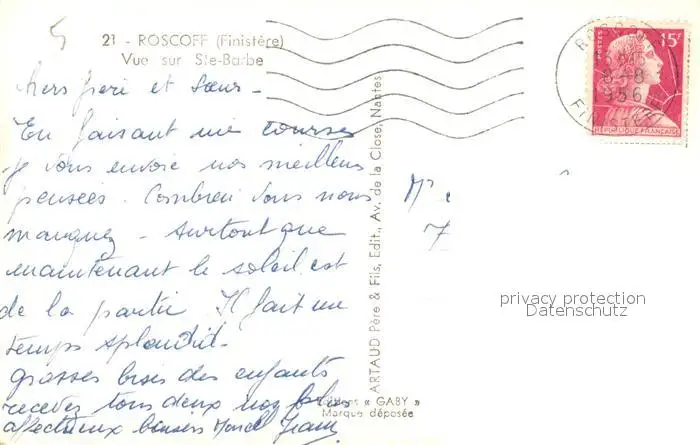 21 - ROSCOFF (Finistère)
Vue sur Ste-Barbe
chers frère et sœur -
En faisant une courses
je vous envoie nos meilleurs
pensées. Combien vous nous
manquez - surtout que
maintenant le soleil est
de la partie Il fait un
temps splendid.
grosses bises des enfants
recevez tous deux nos plus
affectueux baisers Marcel
ARTAUD Père & Fils, Edit., Av. de la Close, Nantes
Editions « GABY »
Marque déposée
ROSCOFF
8-8
1956
FINISTERE
POSTES
15F
REPUBLIQUE FRANÇAISE
privacy protection
Datenschutz